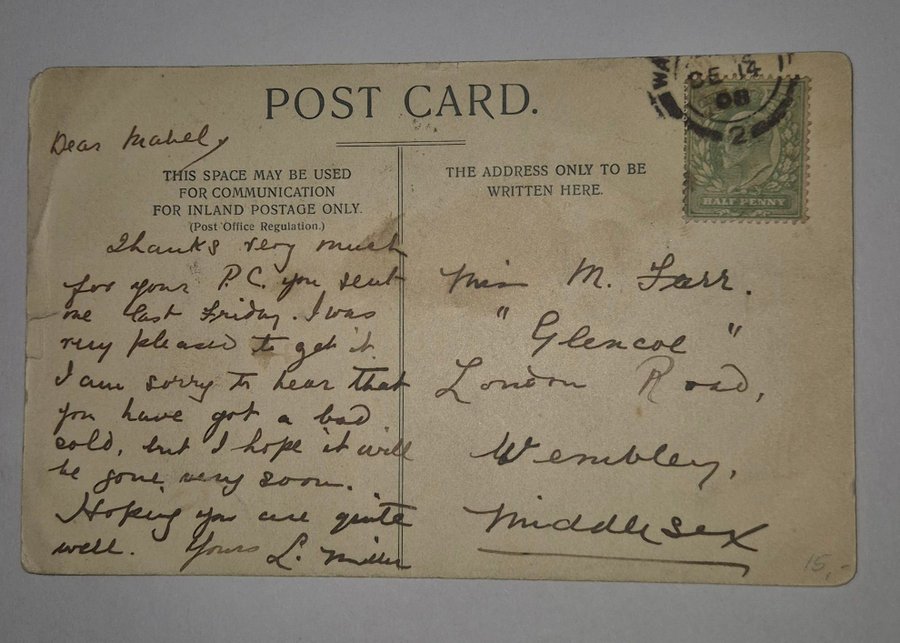 POST CARD.
Dear Mabel,
THIS SPACE MAY BE USED
FOR COMMUNICATION
FOR INLAND POSTAGE ONLY.
(Post Office Regulation.)
Thanks very much
for your P.C. you sent
me last Friday. I was
very pleased to get it.
I am sorry to hear that
you have got a bad
cold, but I hope it will
be gone very soon.
Hoping you are quite
well. Yours L. Miller
THE ADDRESS ONLY TO BE
WRITTEN HERE.
Miss M. Farr.
"Glencoe"
London Road,
Wembley,
Middlesex
WA
SE 14
08
2
HALF PENNY
15,-